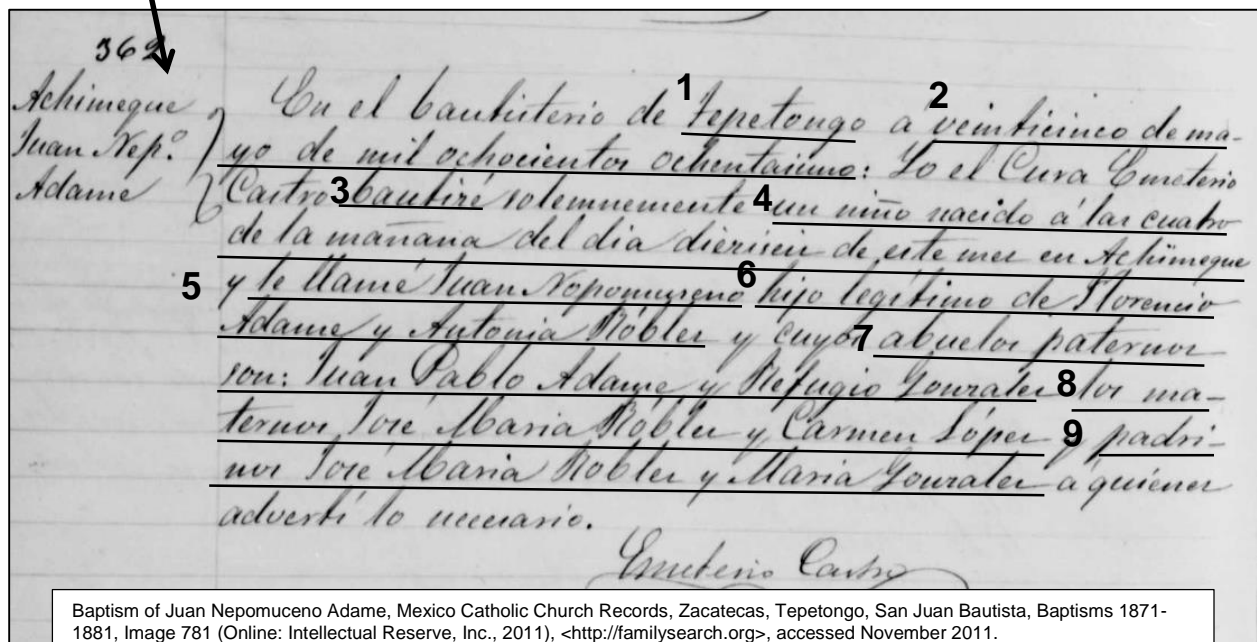 362
Achimeque
Juan Nep.º
Adame
1
2
En el bautisterio de Tepetongo a veinticinco de ma-
yo de mil ochocientos ochentaiuno: Yo el Cura Emeterio
Castro 3 bautizé solemnemente 4 un niño nacido á las cuatro
de la mañana del dia dieziseis de este mes en Achimeque
5 y le llamé Juan Nopomuzeno 6 hijo legítimo de Florencio
Adame y Antonia Róbles y cuyos 7 abuelos paternos
son: Juan Pablo Adame y Refugio Gonzales 8 los ma-
ternos José Maria Róbles y Cármen López y 9 padri-
nos José Maria Robles y Maria Gonzales a quienes
advertí lo necesario.
Emeterio Castro
Baptism of Juan Nepomuceno Adame, Mexico Catholic Church Records, Zacatecas, Tepetongo, San Juan Bautista, Baptisms 1871-
1881, Image 781 (Online: Intellectual Reserve, Inc., 2011), <http://familysearch.org>, accessed November 2011.